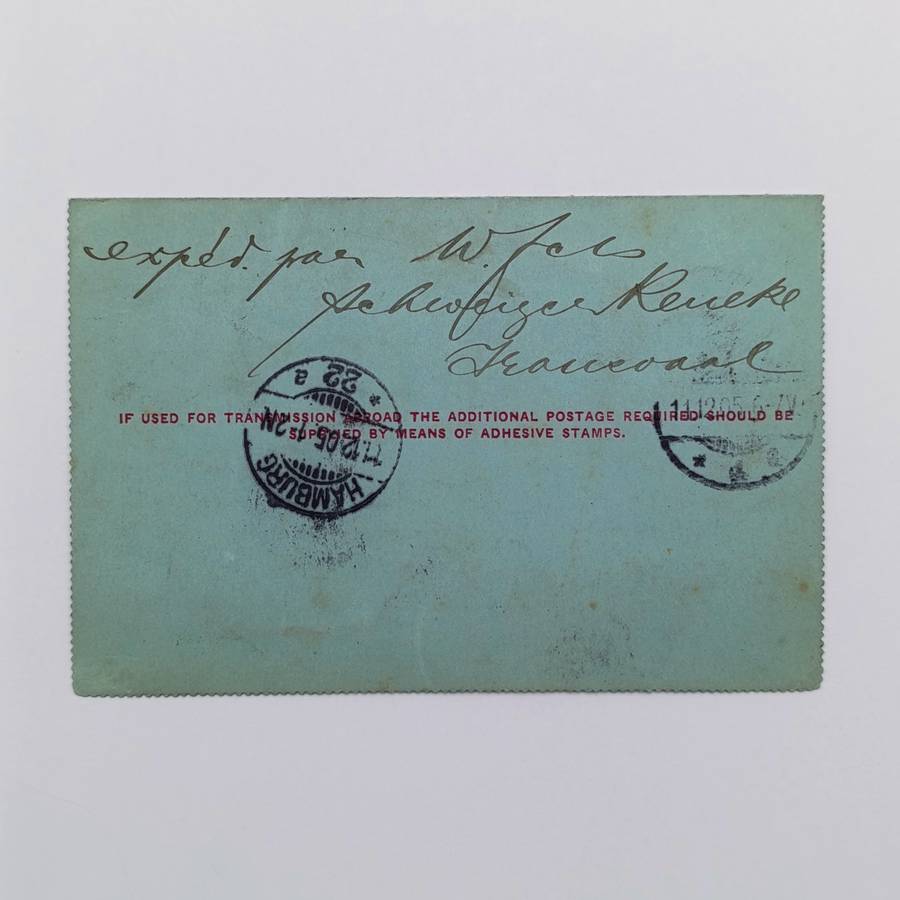 expéd. par W. Fels
Schweizer Reneke
Transvaal
IF USED FOR TRANSMISSION ABROAD THE ADDITIONAL POSTAGE REQUIRED SHOULD BE
SUPPLIED BY MEANS OF ADHESIVE STAMPS.
HAMBURG
11.12.05.1-2N
* 22 a
11.12.05.6-7V